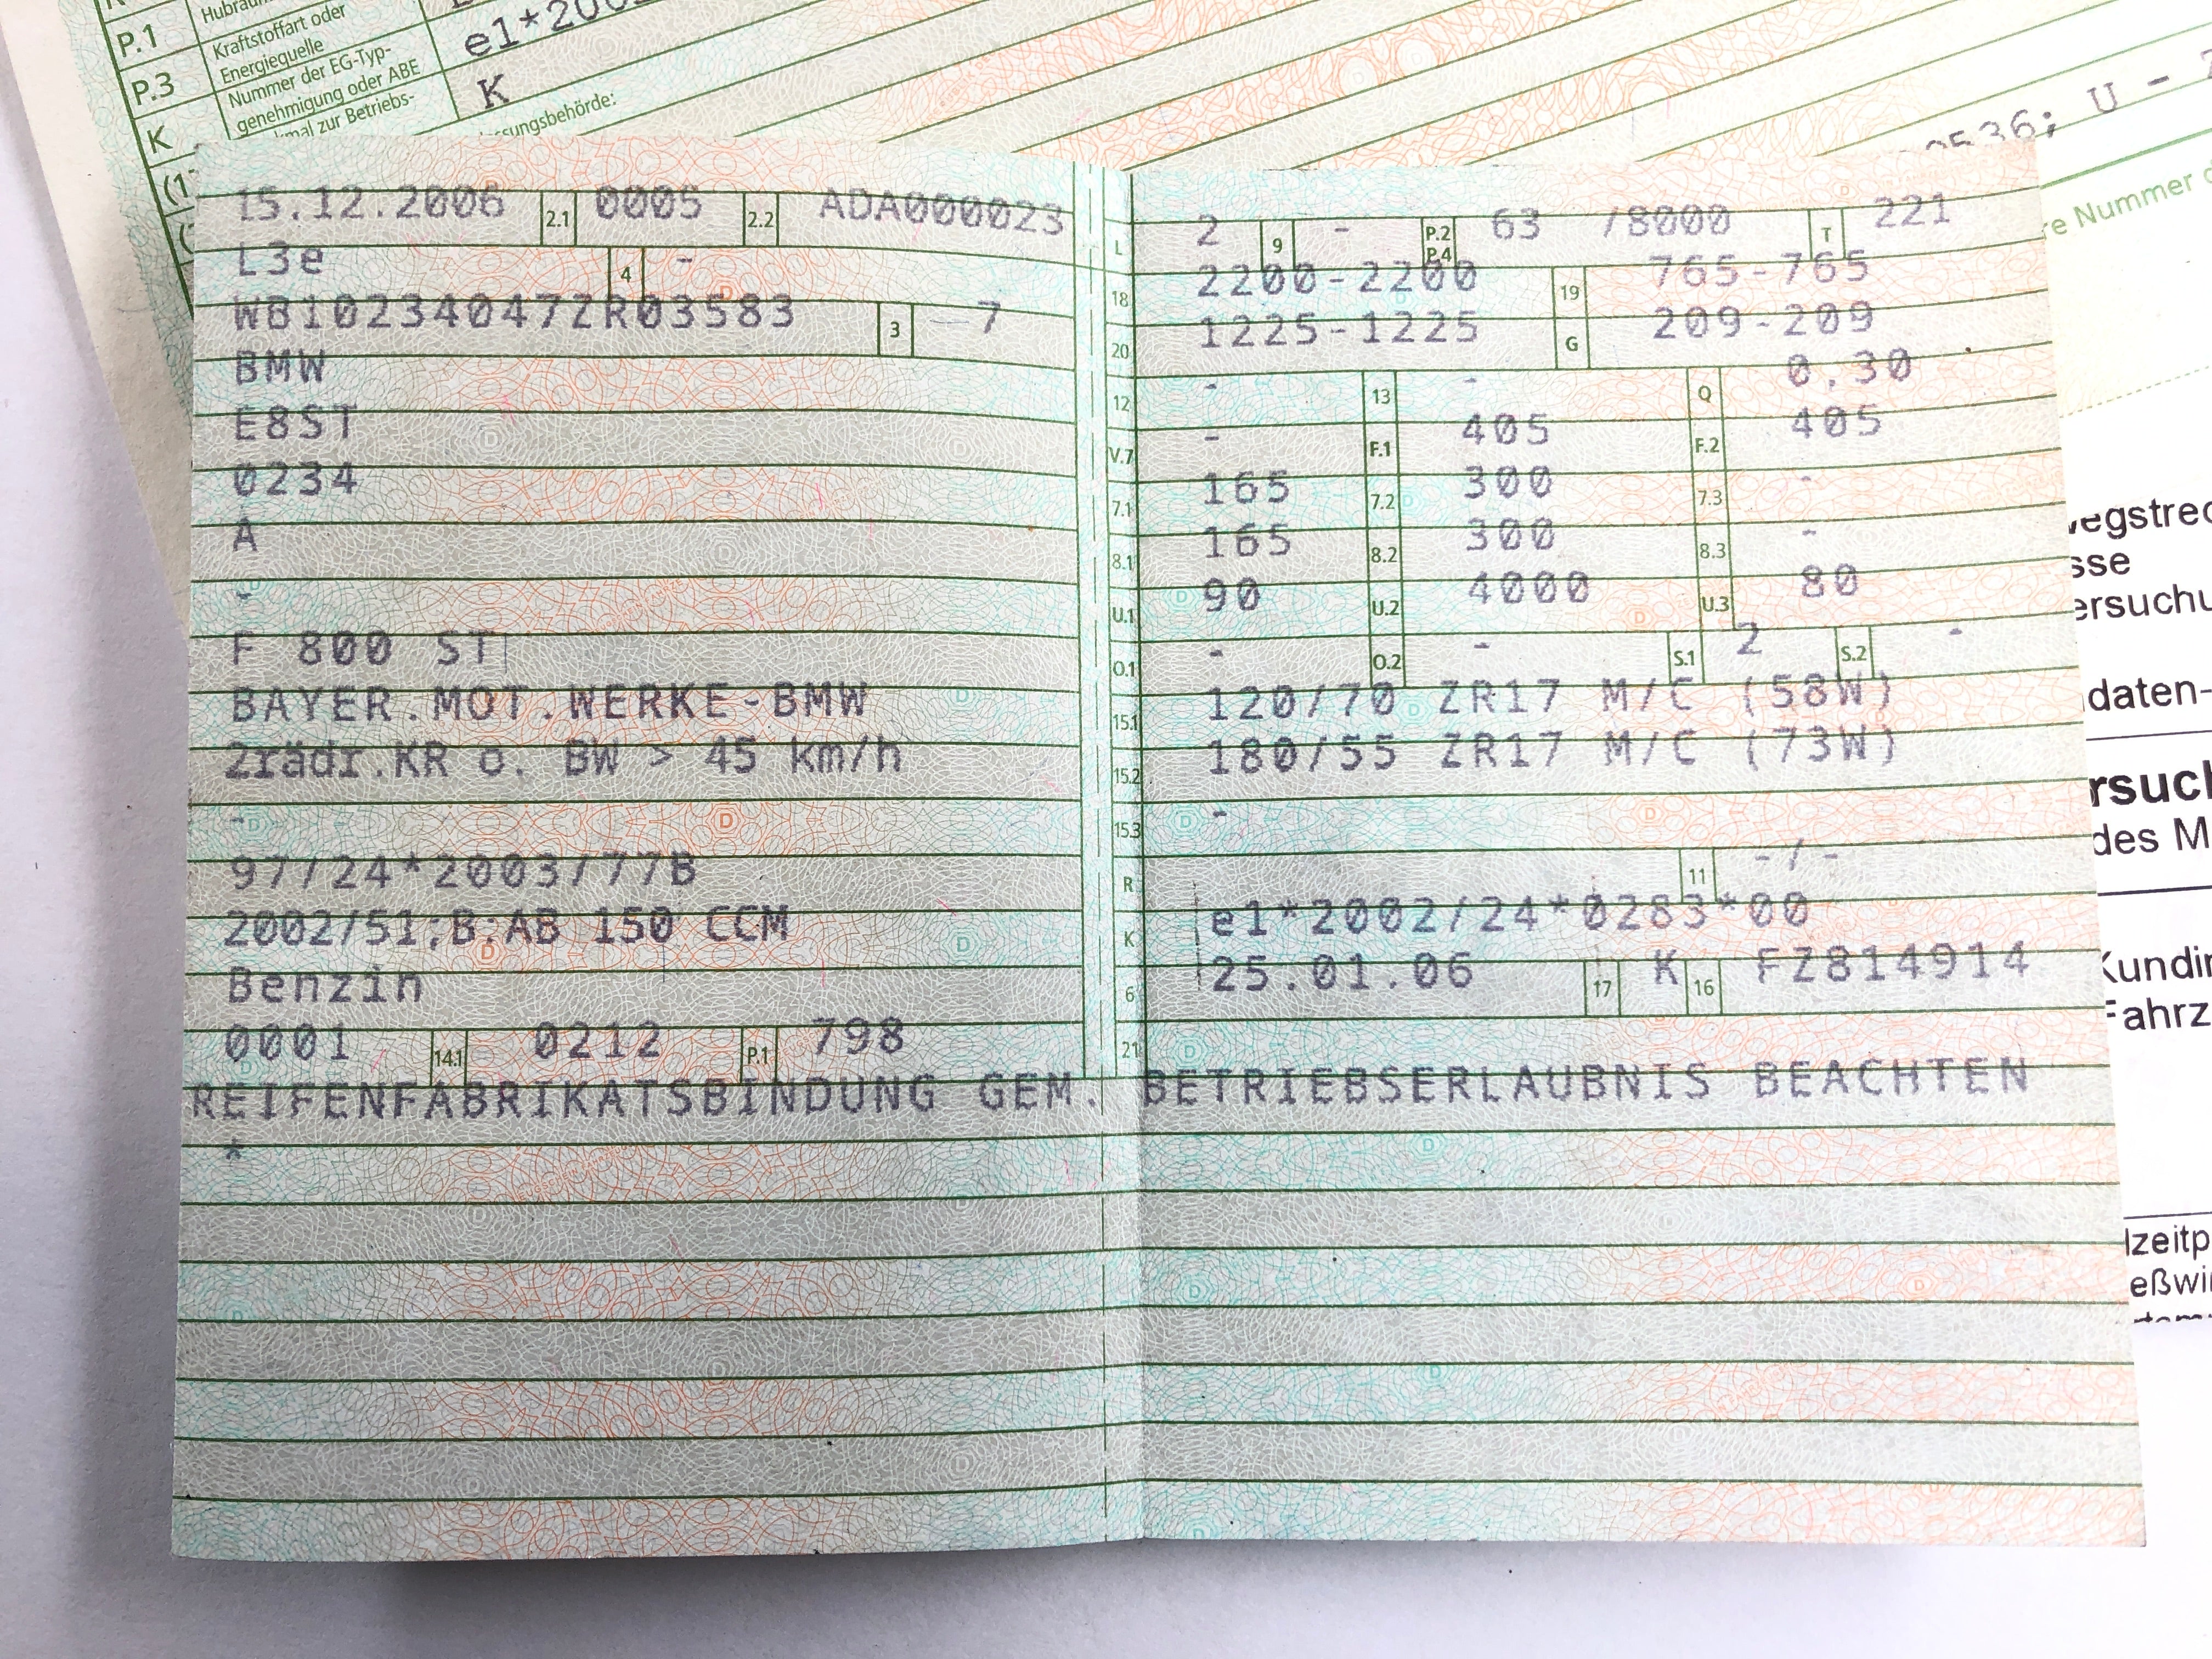 P.1
Kraftstoffart oder
Energiequelle
P.3
Nummer der EG-Typ-
genehmigung oder ABE
e1*200
K
K
mal zur Betriebs-
ssungsbehörde:
0536; U -
re Nummer
15.12.2006 2.1 0005 2.2 ADA000023
L3e 4 -
WB10234047ZR03583 3 7
BMW
E8ST
0234
A
-
F 800 ST
BAYER.MOT.WERKE-BMW
2rädr.KR o. BW > 45 km/h
-
97/24*2003/77B
2002/51;B:AB 150 CCM
Benzin
0001 14.1 0212 P.1 798
L 2 9 - P.2 P.4 63 /8000 T 221
18 2200-2200 19 765-765
20 1225-1225 G 209-209
12 - 13 - Q 0,30
V.7 - F.1 405 F.2 405
7.1 165 7.2 300 7.3 -
8.1 165 8.2 300 8.3 -
U.1 90 U.2 4000 U.3 80
O.1 - O.2 - S.1 2 S.2 -
15.1 120/70 ZR17 M/C (58W)
15.2 180/55 ZR17 M/C (73W)
15.3 -
R 11 -/-
K e1*2002/24*0283*00
6 25.01.06 17 K 16 FZ814914
21
REIFENFABRIKATSBINDUNG GEM. BETRIEBSERLAUBNIS BEACHTEN
*
wegstrec
sse
ersuchu
daten-
rsuch
des M
Kundin
Fahrz
lzeitp
eßwi